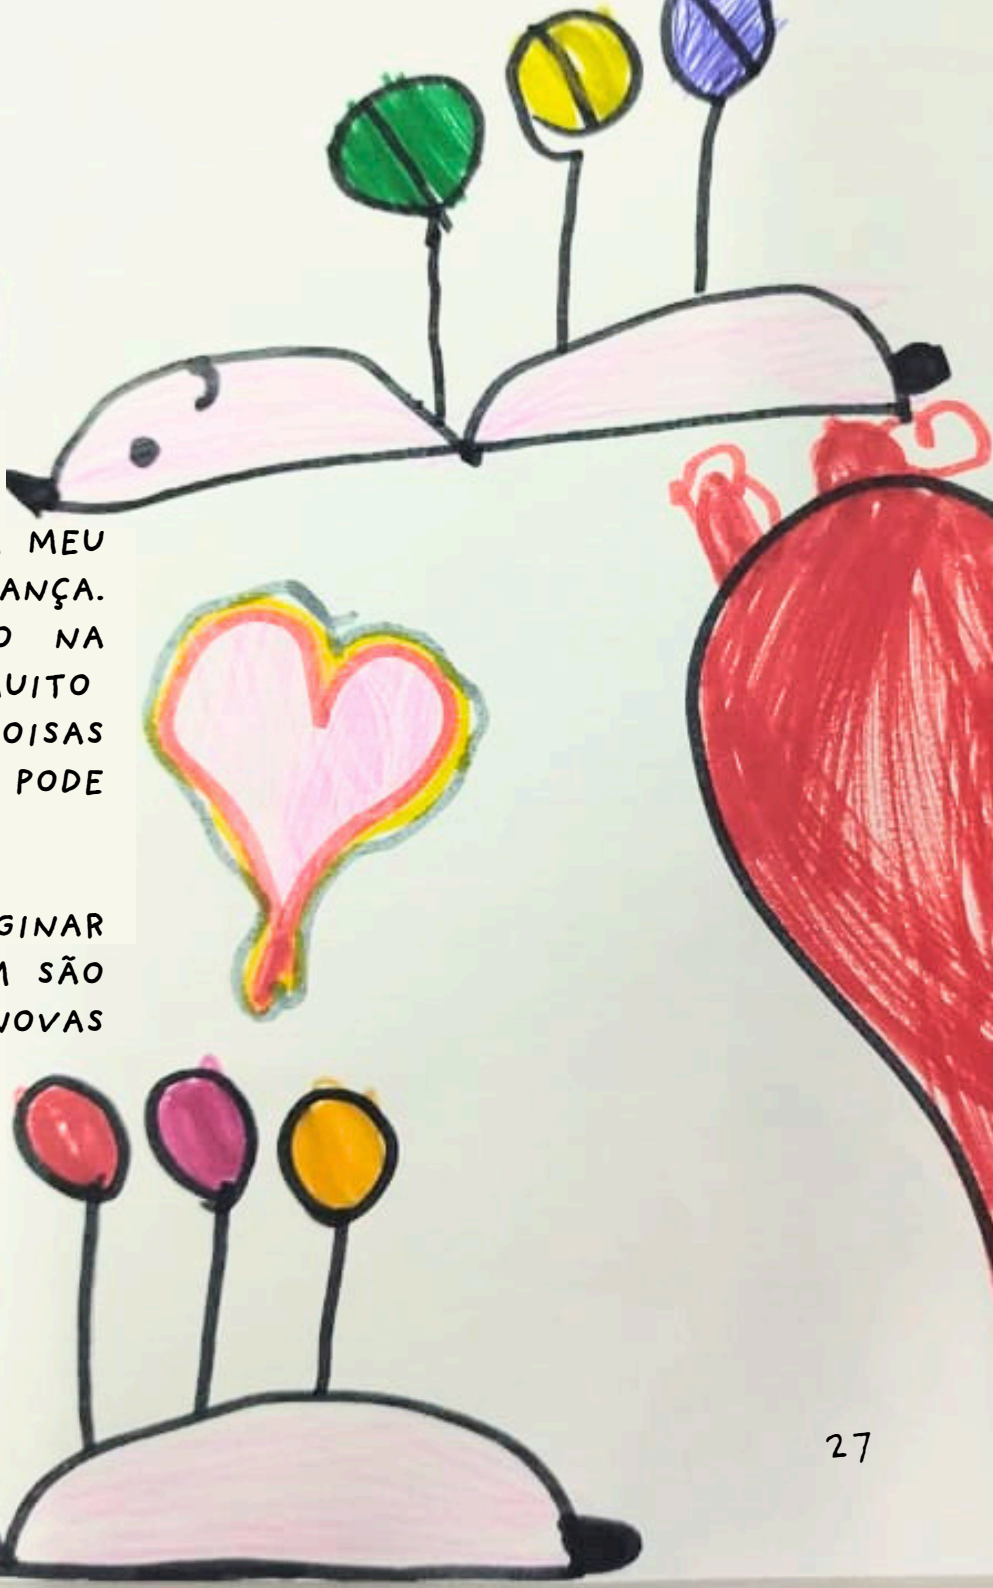 MEU
ANÇA.
O NA
UITO
OISAS
PODE
GINAR
M SÃO
NOVAS
27